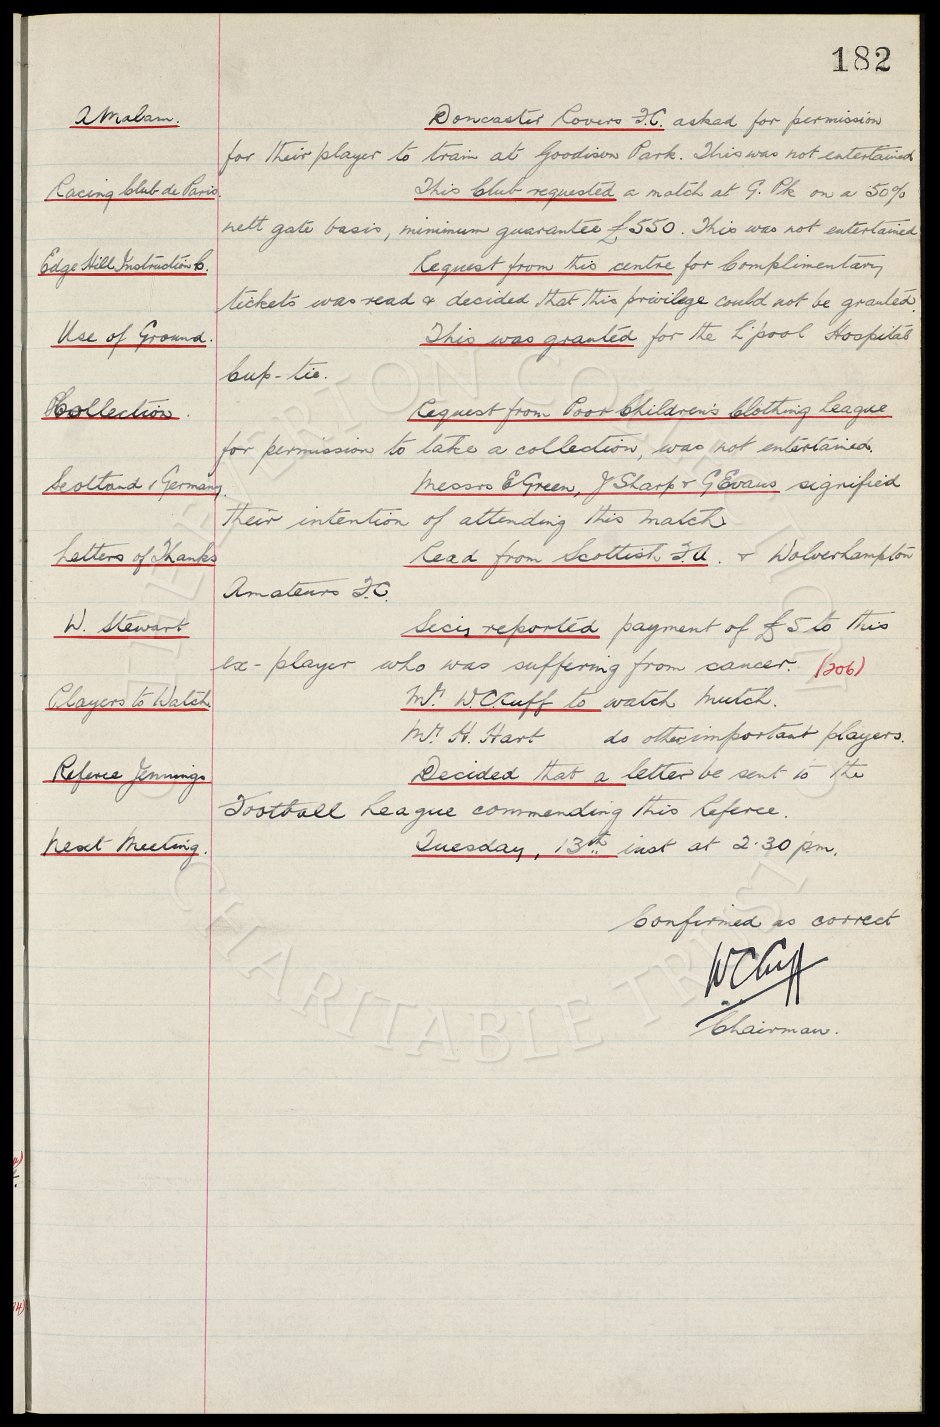 182
A Malam. Doncaster Rovers F.C. asked for permission
for their player to train at Goodison Park. This was not entertained
Racing Club de Paris. This Club requested a match at G. Pk on a 50%
nett gate basis, minimum guarantee £550. This was not entertained
Edge Hill Instruction C. Request from this centre for Complimentary
tickets was read & decided that this privilege could not be granted.
Use of Ground. This was granted for the L'pool Hospitals
Cup-tie.
Collection. Request from Poor Children's Clothing League
for permission to take a collection, was not entertained.
Scotland v Germany. Messrs E Green, J Sharp & G Evans signified
their intention of attending this match
Letters of Thanks Read from Scottish F.A. & Wolverhampton
Amateurs F.C.
W. Stewart Secy reported payment of £5 to this
ex-player who was suffering from cancer. (206)
Players to Watch Mr. W.C. Cuff to watch Mutch.
Mr. H. Hart do other important players.
Referee Jennings Decided that a letter be sent to the
Football League commending this Referee.
Next Meeting. Tuesday, 13th inst at 2.30 p.m.
Confirmed as correct
W C Cuff
Chairman.
THE EVERTON COLLECTION
CHARITABLE TRUST